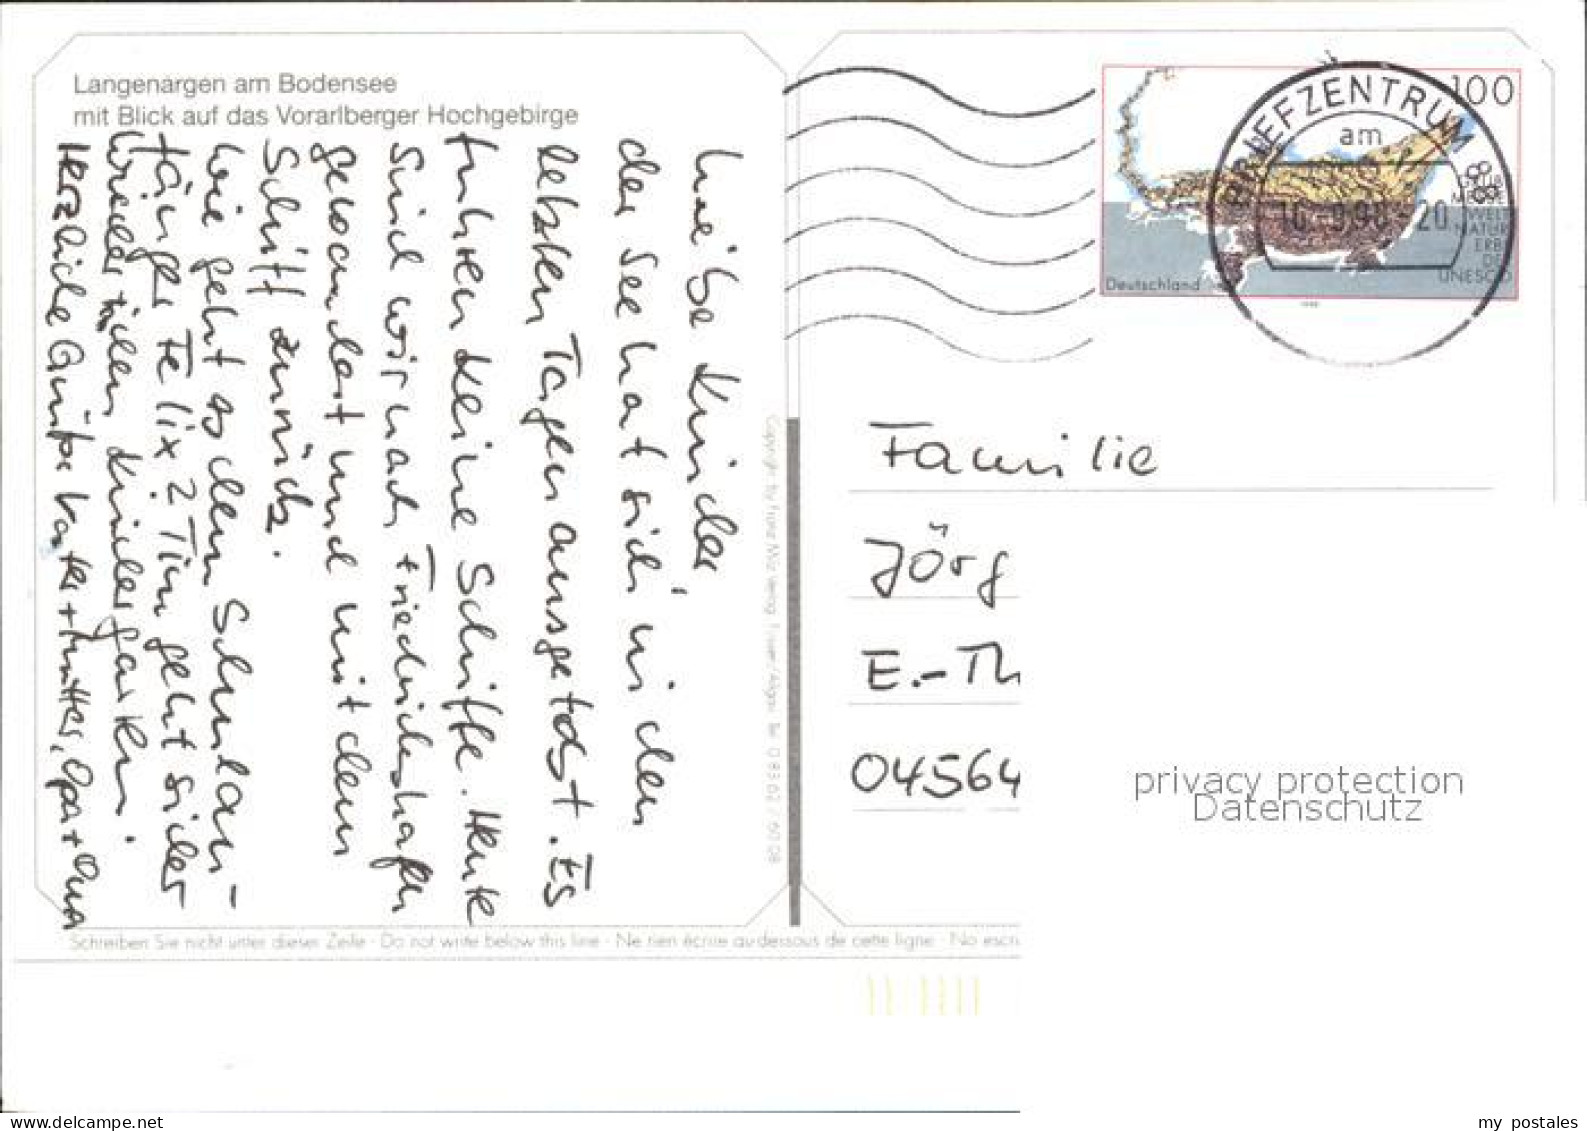 Langenargen am Bodensee
mit Blick auf das Vorarlberger Hochgebirge
Liebe Kinder,
der See hat sich in den
letzten Tagen ausgetobt. Es
fuhren keine Schiffe. Heute
sind wir nach Friedrichshafen
gewandert und mit dem
Schiff zurück.
Wie geht es dem Schulan-
fänger Felix? Tim geht sicher
wieder in den Kindergarten.
Herzliche Grüße Vater + Mutter, Opa + Oma
Copyright by Franz Milz Verlag
Schreiben Sie nicht unter dieser Zeile · Do not write below this line · Ne rien écrire au-dessous de cette ligne · No escri
100
Deutschland
GRUBE
MESSEL
WELT
NATUR
ERBE
DER
UNESCO
BRIEFZENTRUM 88
am
20
Familie
Jörg
E.-Th
04564
privacy protection
Datenschutz
my postales